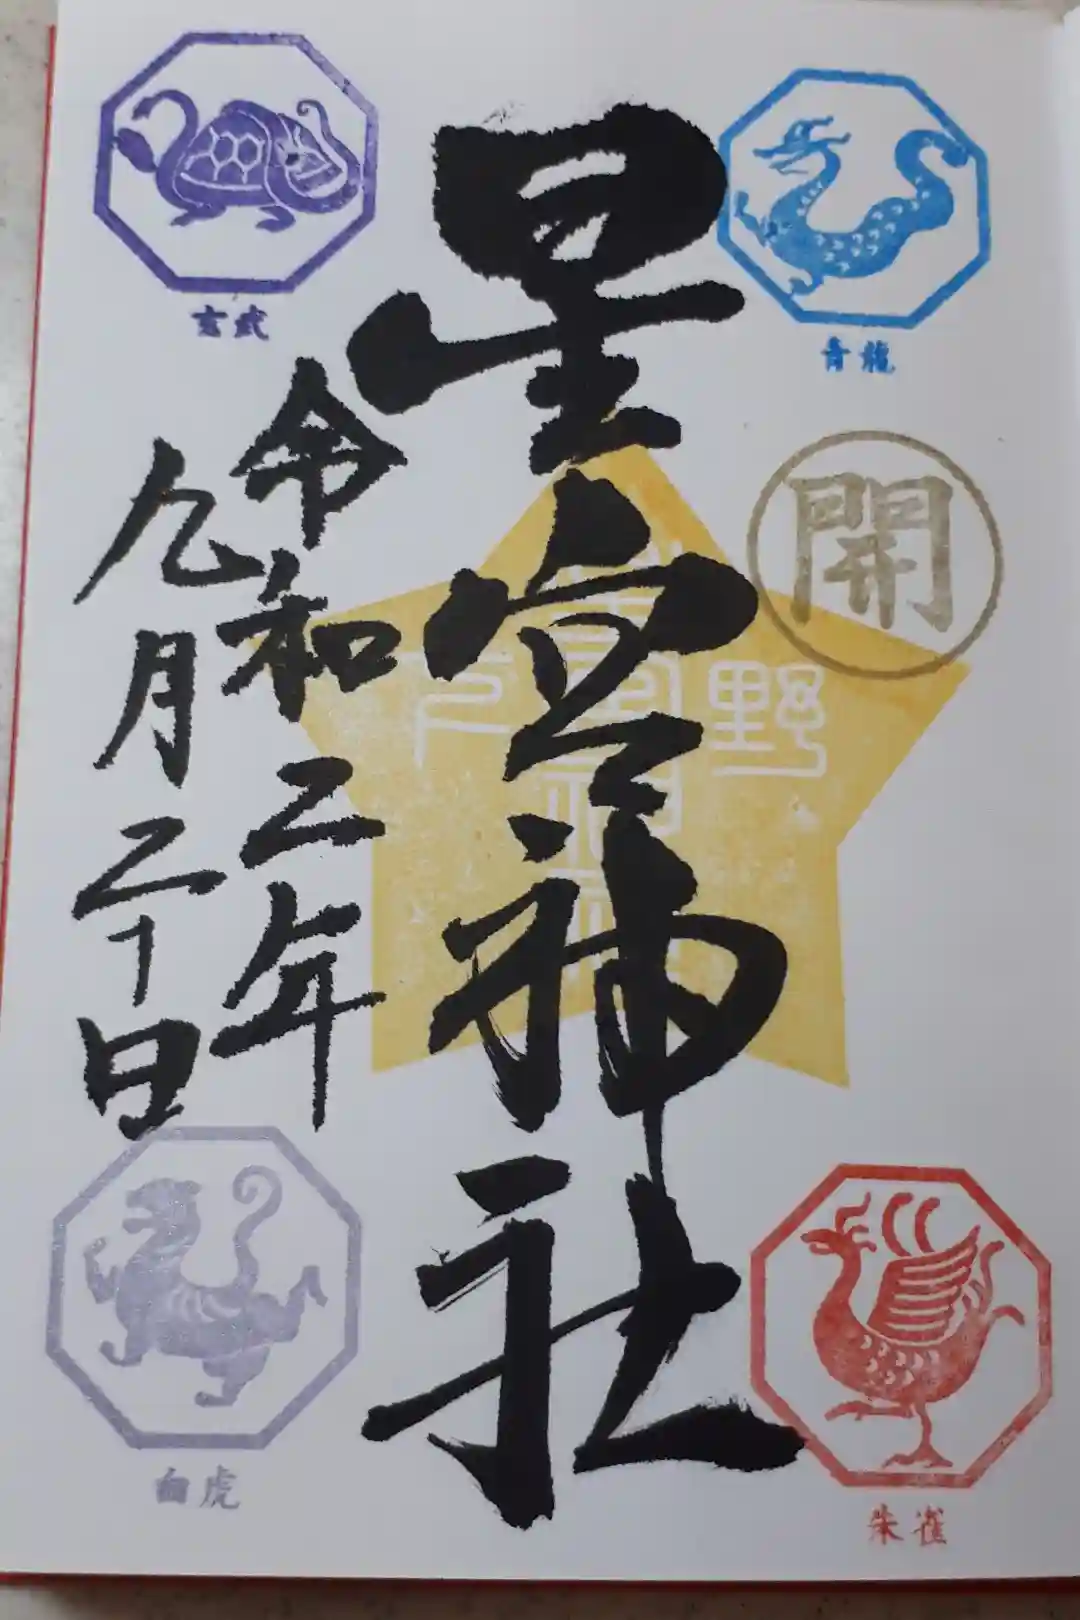 青龍
開
朱雀
星宮神社
野
令和二年
九月二十日
玄武
白虎